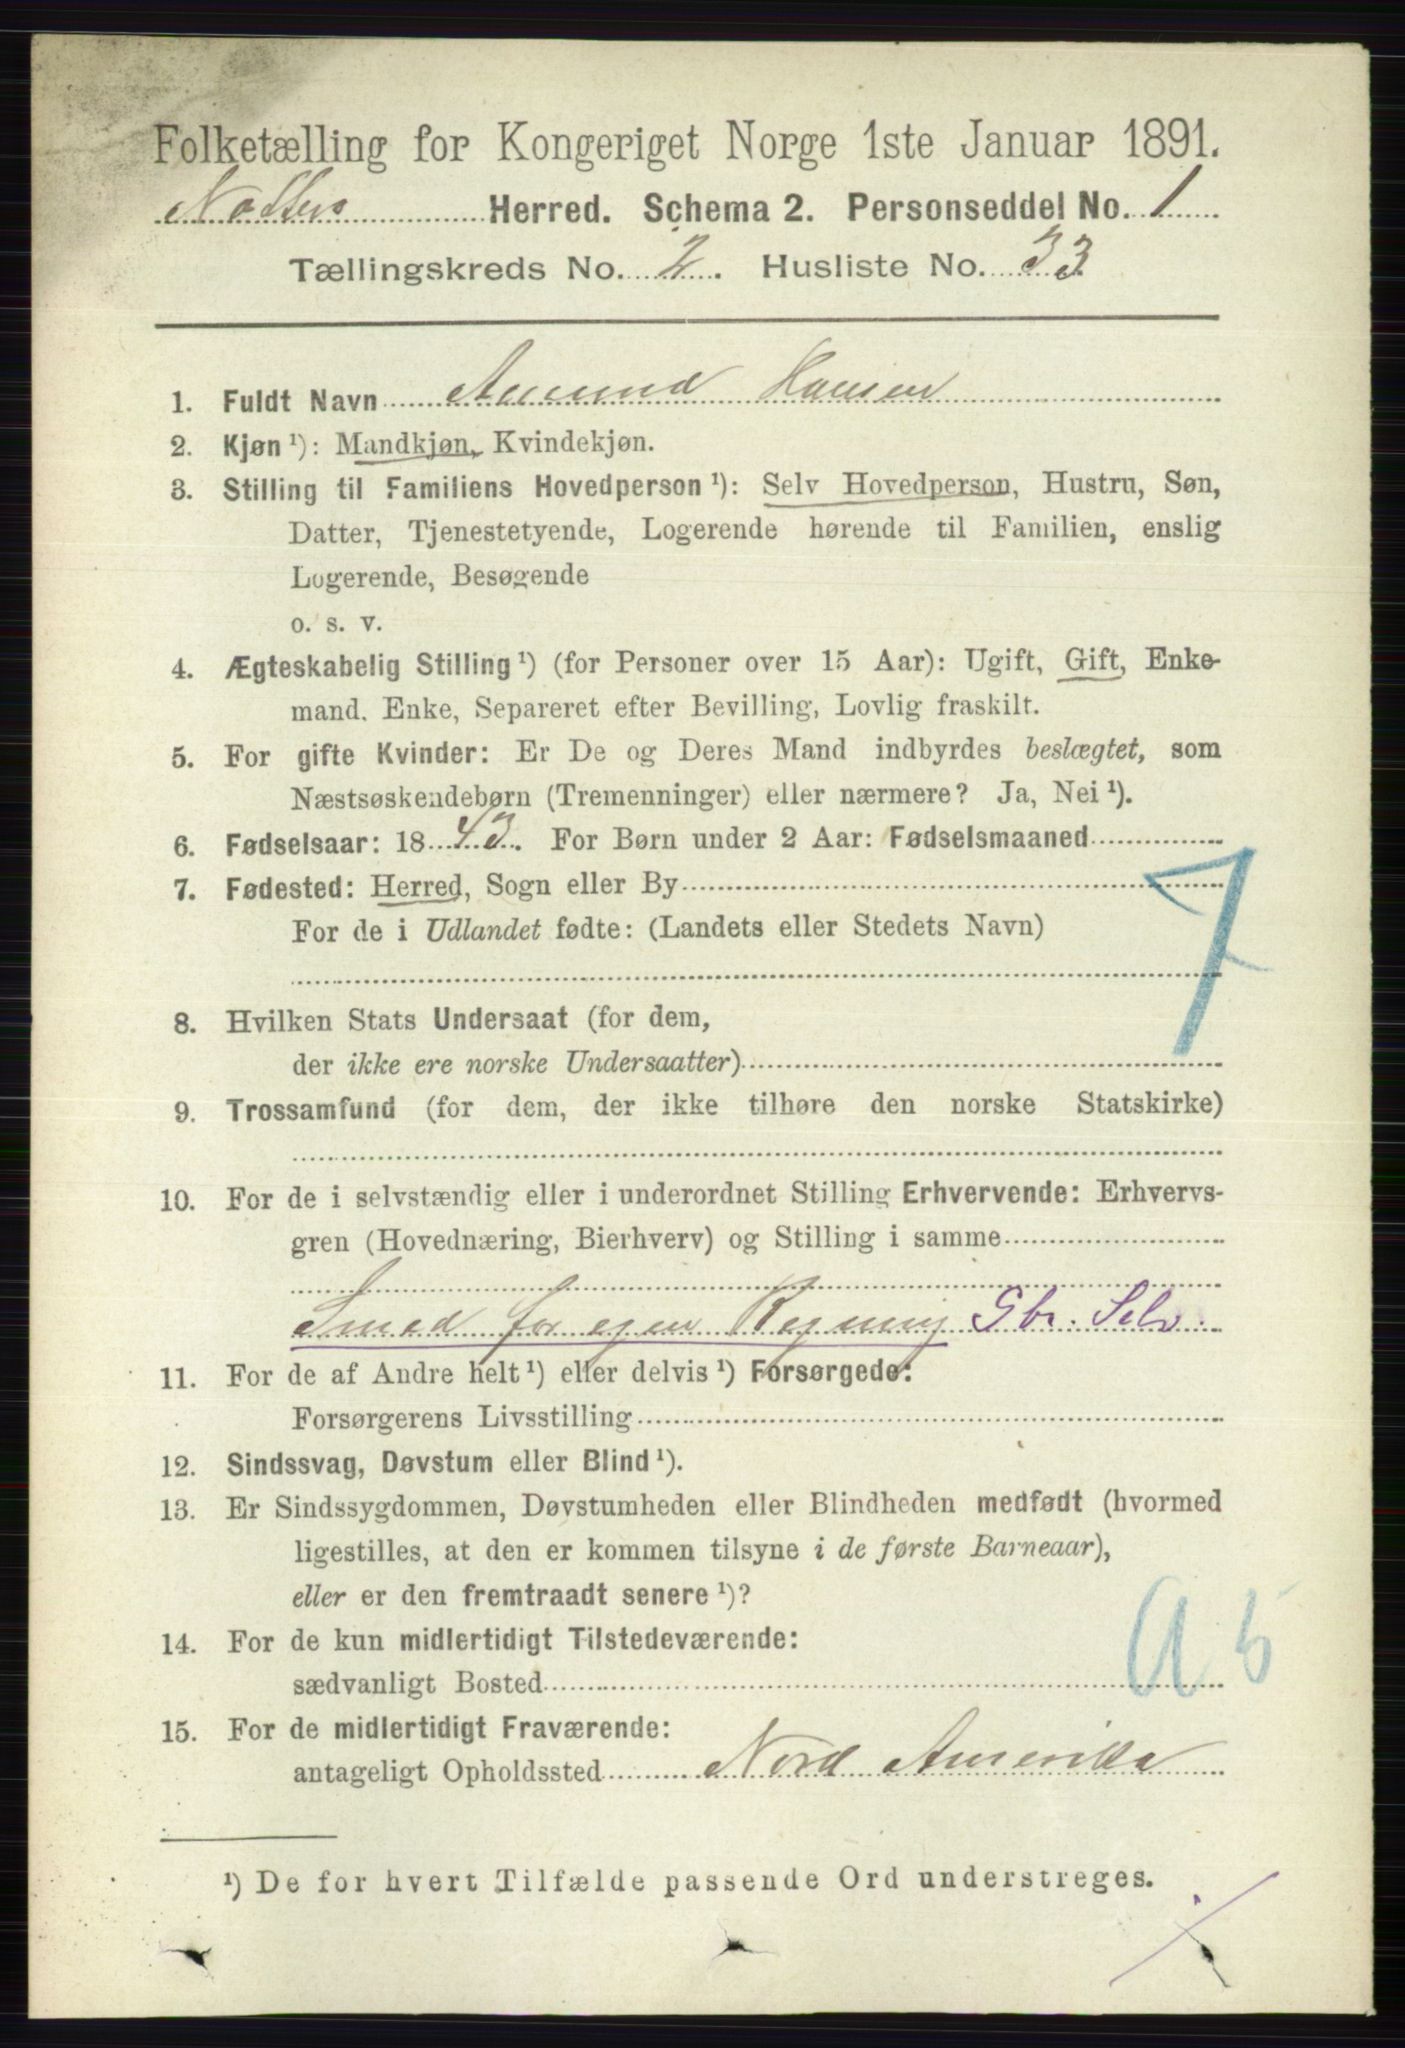 Folketælling for Kongeriget Norge 1ste Januar 1891.
Nøtterø Herred. Schema 2. Personseddel No. 1
Tællingskreds No. 2. Husliste No. 33
1. Fuldt Navn Amund Hansen
2. Kjøn ¹): Mandkjøn, Kvindekjøn.
3. Stilling til Familiens Hovedperson ¹): Selv Hovedperson, Hustru, Søn,
Datter, Tjenestetyende, Logerende hørende til Familien, enslig
Logerende, Besøgende
o. s. v.
4. Ægteskabelig Stilling ¹) (for Personer over 15 Aar): Ugift, Gift, Enke-
mand. Enke, Separeret efter Bevilling, Lovlig fraskilt.
5. For gifte Kvinder: Er De og Deres Mand indbyrdes beslægtet, som
Næstsøskendebørn (Tremenninger) eller nærmere? Ja, Nei ¹).
6. Fødselsaar: 1843. For Børn under 2 Aar: Fødselsmaaned
7. Fødested: Herred, Sogn eller By
7
For de i Udlandet fødte: (Landets eller Stedets Navn)
8. Hvilken Stats Undersaat (for dem,
der ikke ere norske Undersaatter)
9. Trossamfund (for dem, der ikke tilhøre den norske Statskirke)
10. For de i selvstændig eller i underordnet Stilling Erhvervende: Erhvervs-
gren (Hovednæring, Bierhverv) og Stilling i samme
Smed for egen Regning Gbr. Selv.
11. For de af Andre helt ¹) eller delvis ¹) Forsørgede:
Forsørgerens Livsstilling
12. Sindssvag, Døvstum eller Blind ¹).
13. Er Sindssygdommen, Døvstumheden eller Blindheden medfødt (hvormed
ligestilles, at den er kommen tilsyne i de første Barneaar),
eller er den fremtraadt senere ¹)?
14. For de kun midlertidigt Tilstedeværende:
sædvanligt Bosted
a 5
15. For de midlertidigt Fraværende:
antageligt Opholdssted Nord Amerika
¹) De for hvert Tilfælde passende Ord understreges.